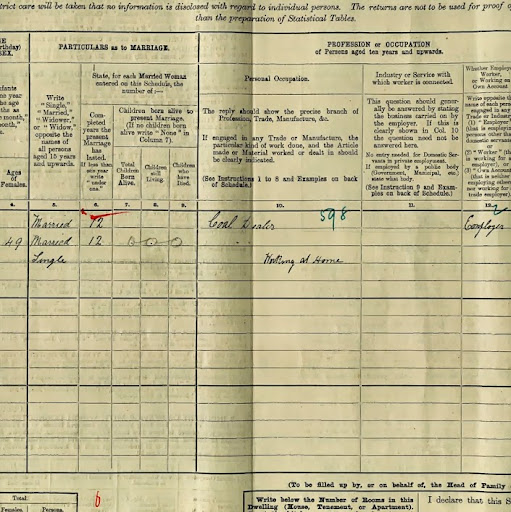 trict care will be taken that no information is disclosed with regard to individual persons. The returns are not to be used for proof o
than the preparation of Statistical Tables.
GE
irthday)
SEX.
PARTICULARS as to MARRIAGE.
PROFESSION or OCCUPATION
of Persons aged ten years and upwards.
Write
"Single,"
"Married,"
"Widower,"
or "Widow,"
opposite the
names of
all persons
aged 15
years and
upwards.
State, for each Married Woman
entered on this Schedule, the
number of:—
Com-
pleted
years the
present
Marriage
has
lasted.
If less than
one year
write
"under
one."
Children born alive to
present Marriage.
(If no children born
alive write "None" in
Column 7).
Total
Children
Born
Alive.
Children
still
Living.
Children
who
have
Died.
Personal Occupation.
The reply should show the precise branch of
Profession, Trade, Manufacture, &c.
If engaged in any Trade or Manufacture, the
particular kind of work done, and the Article
made or Material worked or dealt in should
be clearly indicated.
(See Instructions 1 to 8 and Examples on back
of Schedule.)
Industry or Service with
which worker is connected.
This question should gener-
ally be answered by stating
the business carried on by
the employer. If this is
clearly shown in Col. 10
the question need not be
answered here.
No entry needed for Domestic Ser-
vants in private employment.
If employed by a public body
(Government, Municipal, etc.)
state what body.
(See Instruction 9 and Exam-
ples on back of Schedule.)
Whether Employer,
Worker,
or Working on
Own Account.
Ages
of
Females.
4. 5. 6. 7. 8. 9. 10. 11. 12.
Married 12 Coal Dealer 598 Employer
49 Married 12 0 0 0
Single Working at Home
(To be filled up by, or on behalf of, the Head of Family
Total.
Females. Persons.
6
Write below the Number of Rooms in this
Dwelling (House, Tenement, or Apartment).
I declare that this S